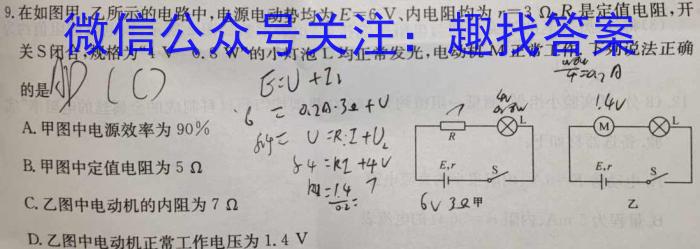 9.在如图甲、乙所示的电路中,电源电动势均为E=6 V、内电阻均为r=3 Ω,R是定值电阻,开
微信公众号关注:趣找答案
关S闭合,规格为"4 V 0.8 W"的小灯泡L均正常发光,电动机M正常工作,下列说法正确
的是 ( C )
A.甲图中电源效率为90%
B.甲图中定值电阻为5 Ω
C.乙图中电动机的内阻为7 Ω
D.乙图中电动机正常工作电压为1.4 V
E=U+Ir
6 = 0.2A·3Ω+U
5.4= U=R·I+U₂
5.4=RI+4V
R=1.4/0.2= 7
=0.2A
R
L
E,r
S
6V 3Ω 甲
1.4V
M
L
E,r
S
乙